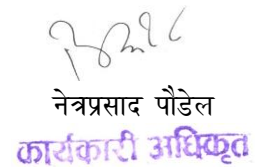 नेत्रप्रसाद पौडेल
कार्यकारी अधिकृत